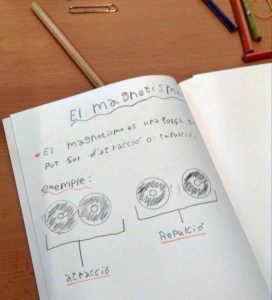 El magnetisme
• El magnetisme es una força
pot ser d'atracció o repulció.
exemple:
atracció
Repulció